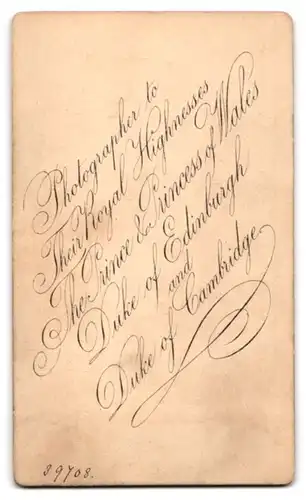 Photographer to
Their Royal Highnesses
The Prince & Princess of Wales
Duke of Edinburgh
and
Duke of Cambridge
39708.